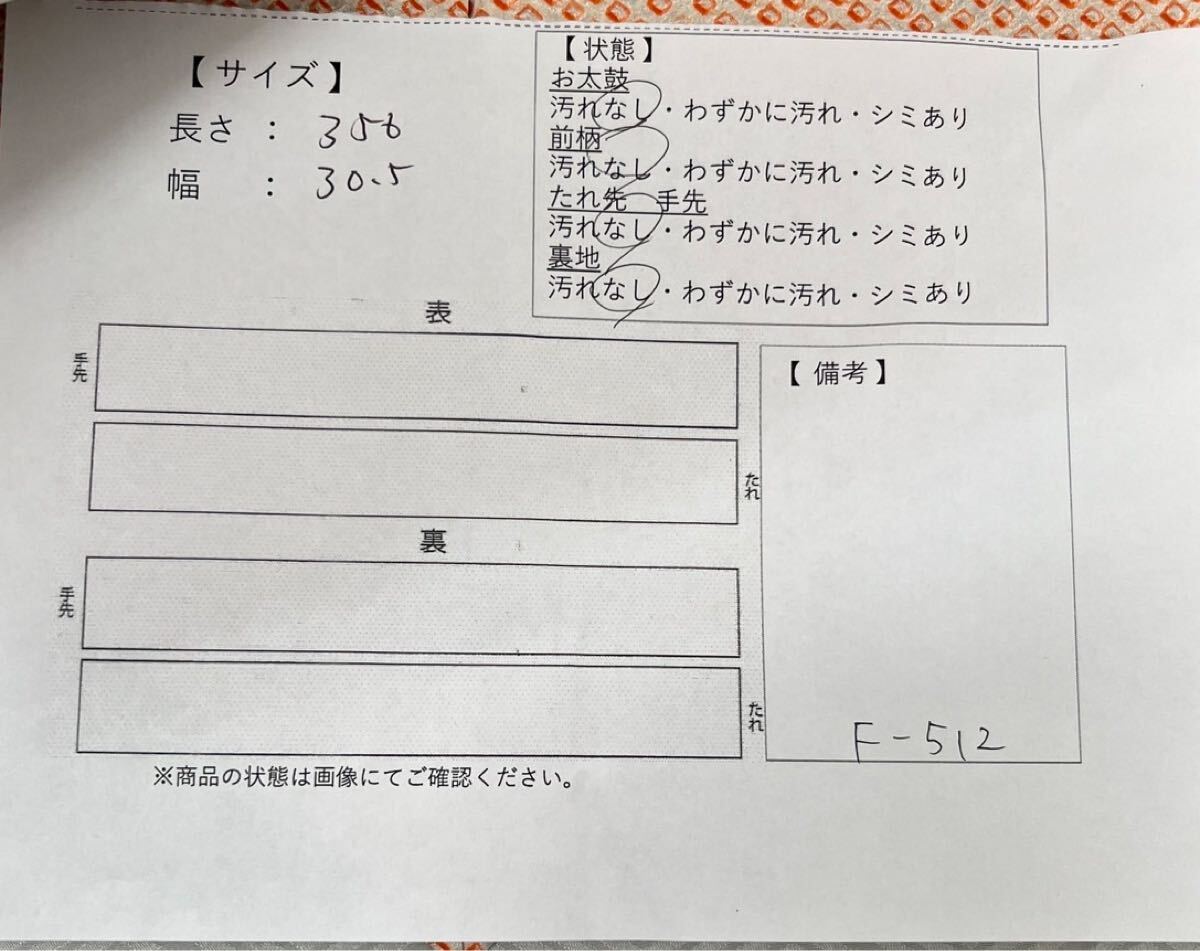 【サイズ】
長さ : 356
幅 : 30.5
【状態】
お太鼓
汚れなし・わずかに汚れ・シミあり
前柄
汚れなし・わずかに汚れ・シミあり
たれ先 手先
汚れなし・わずかに汚れ・シミあり
裏地
汚れなし・わずかに汚れ・シミあり
表
手先
たれ
裏
手先
たれ
※商品の状態は画像にてご確認ください。
【備考】
F-512